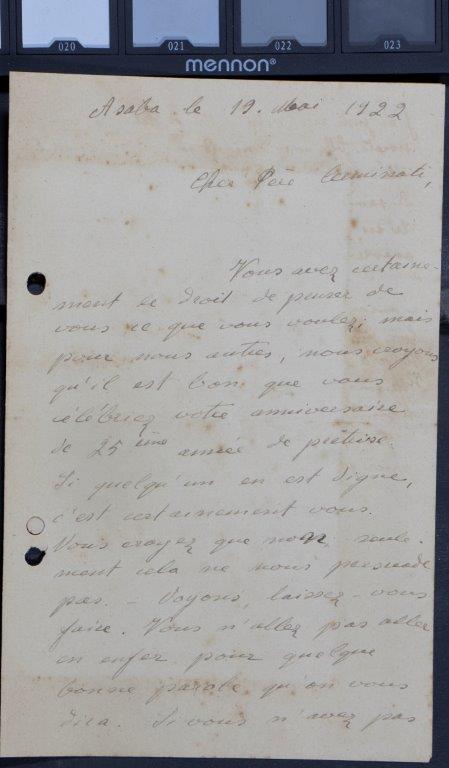 020 021 022 023
mennon®
Asaba le 19. Mai 1922
Cher Père Cerminati,
Vous avez certaine-
ment le droit de penser de
vous ce que vous voulez, mais
pour nous autres, nous croyons
qu'il est bon que vous
célébriez votre anniversaire
de 25ème année de prêtrise.
Si quelqu'un en est digne,
c'est certainement vous.
Vous croyez que non, seule-
ment cela ne nous persuade
pas. - Voyons, laissez-vous
faire. Vous n'allez pas aller
en enfer pour quelque
bonne parole qu'on vous
dira. Si vous n'avez pas